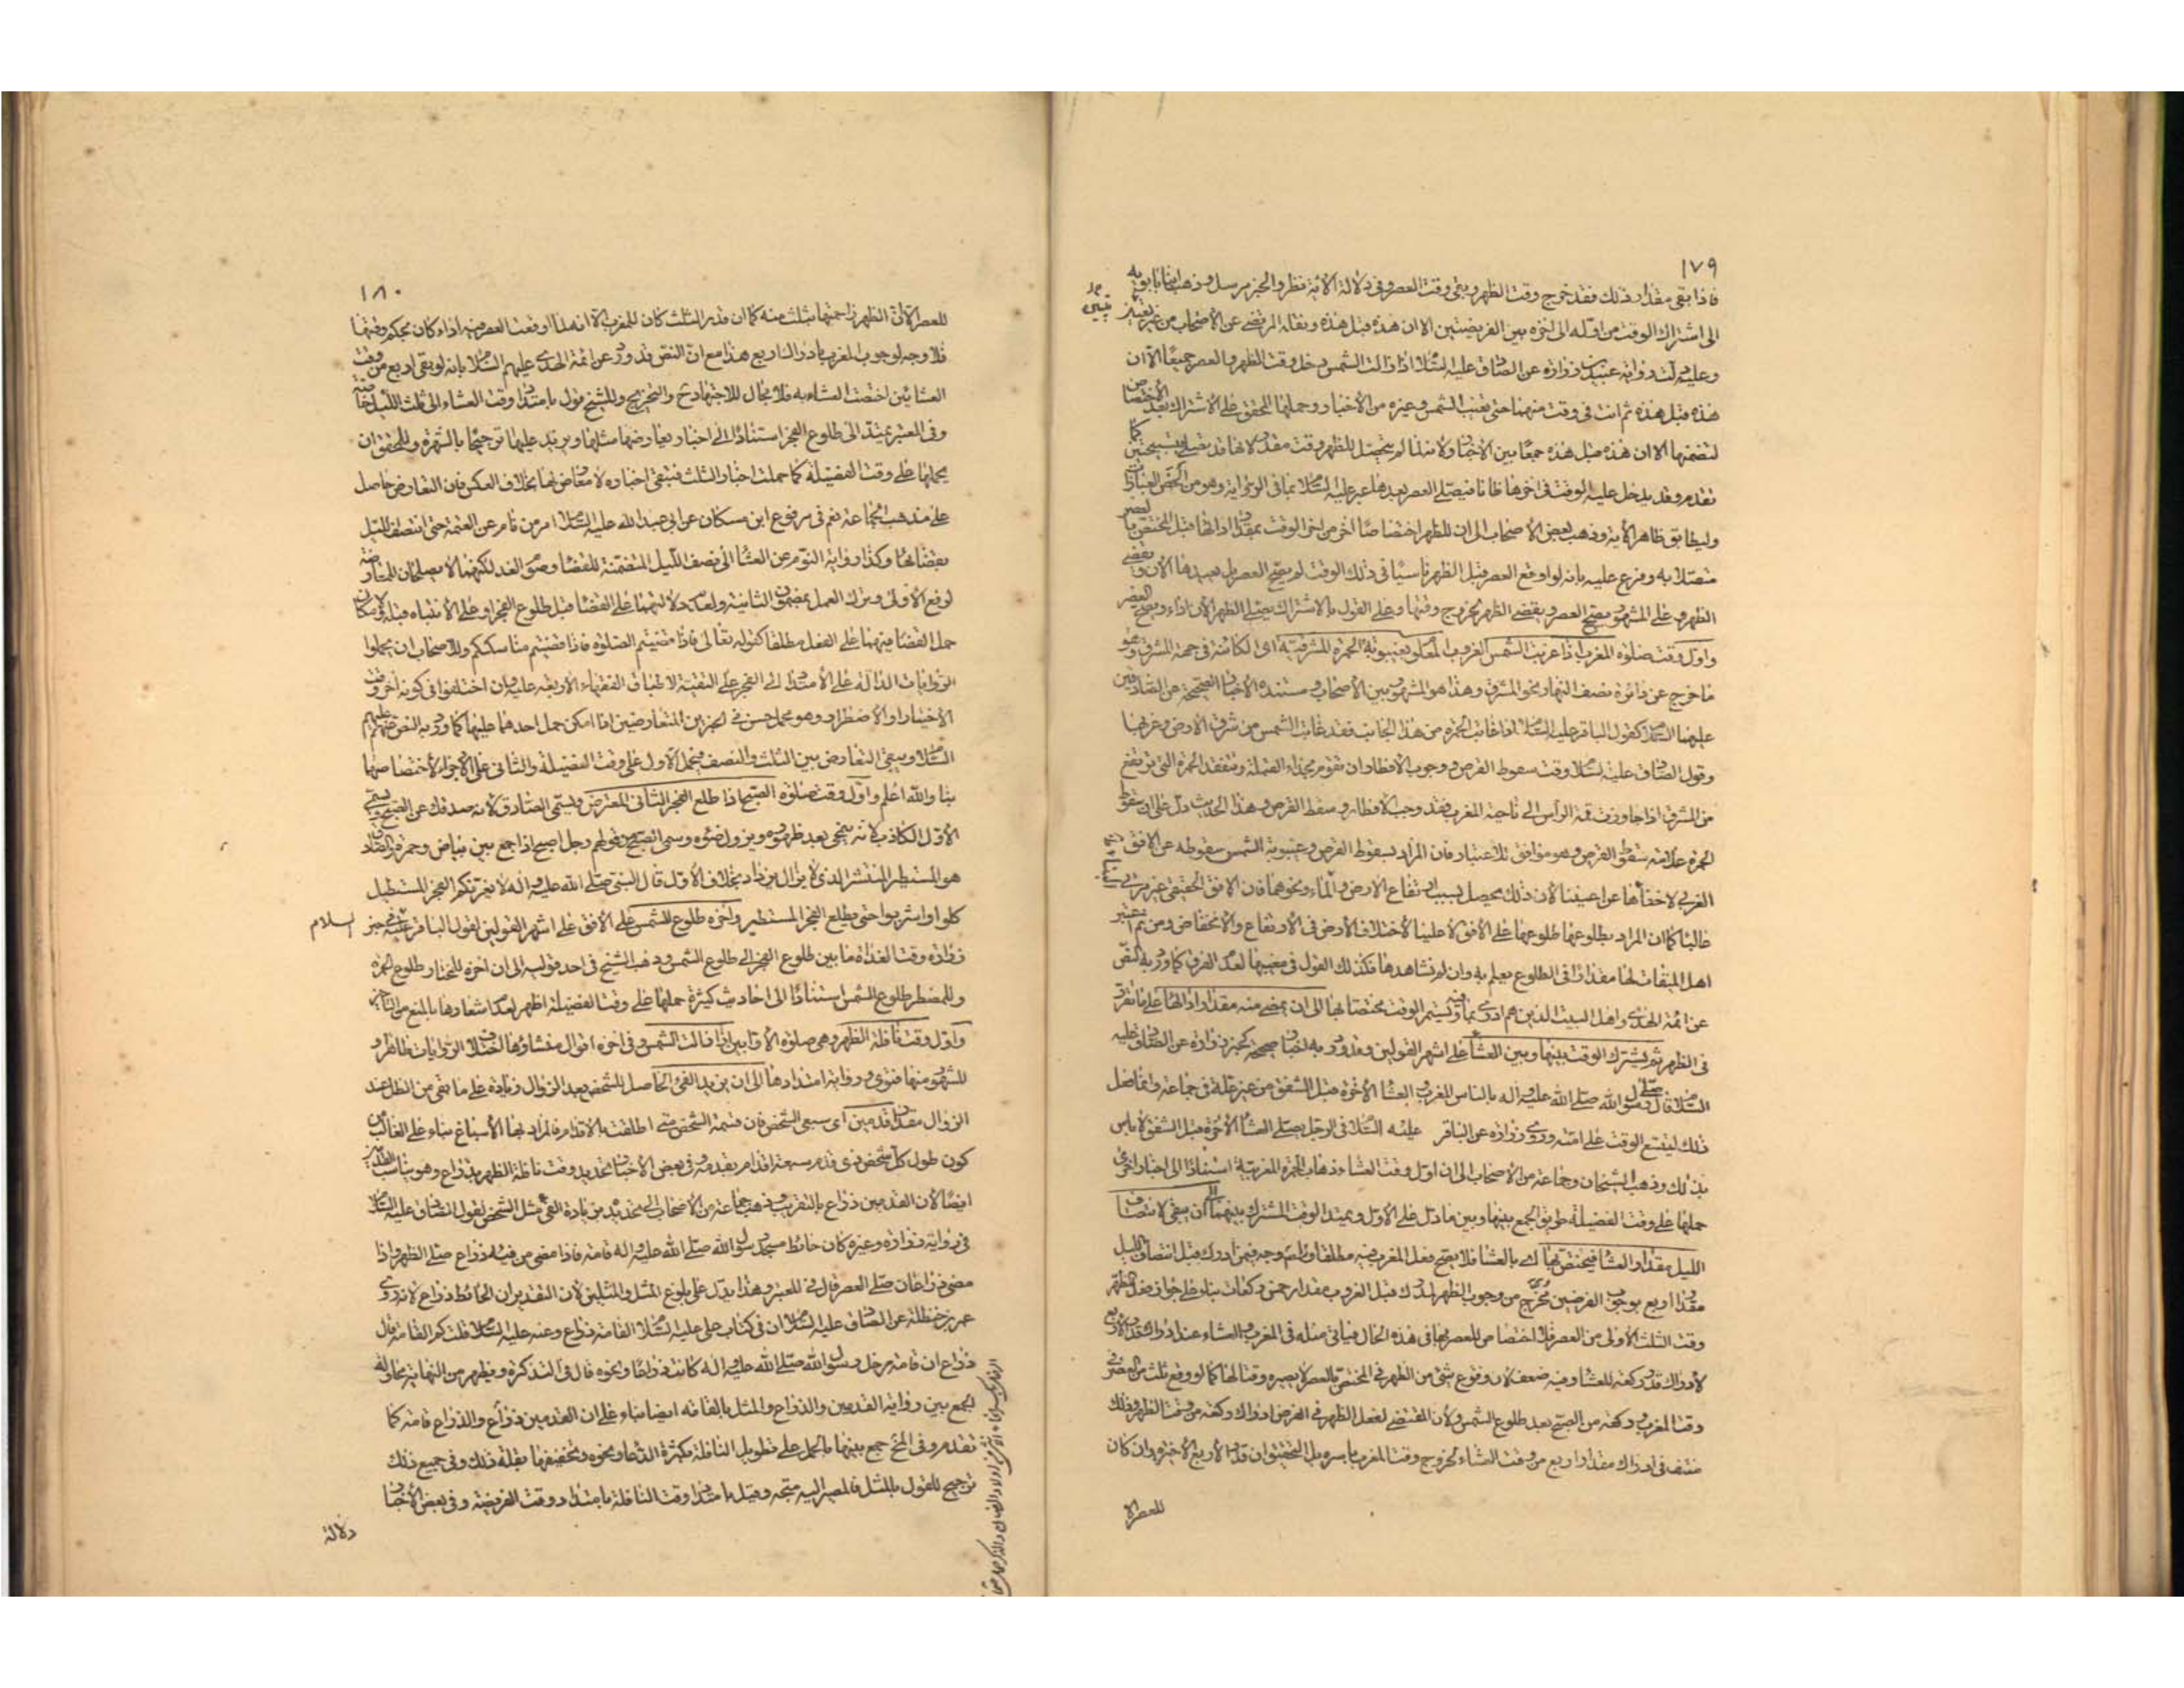 ١٧٩
فاذا بقى مقدار ذلك فقد خرج وقت الظهر وبقى وقت العصر وفى دلالة الآية نظر والخبر مرسل وذهب ابنا بابويه
الى اشتراك الوقت من اوله الى اخره بين الفريضتين الا ان هذه قبل هذه ونقله المرتضى عن الاصحاب من غير تعيين
وعليه دلت رواية عبيد بن زرارة عن الصادق عليه السلام اذا زالت الشمس دخل وقت الظهر والعصر جميعا الا ان
هذه قبل هذه ثم انت فى وقت منهما حتى تغيب الشمس وغيره من الاخبار وحملها المحقق على الاشتراك بعد الاختصاص
لتضمنها الا ان هذه قبل هذه جمعا بين الاخبار ولانه لما لم يتحصل للظهر وقت مقدر لانها قد تصلى بتسبيحتين كما
تقدم وقد يدخل عليه الوقت فى اخرها ظانا فيصلى العصر بعدها عبر عليه السلام بما فى الرواية وهو من اخص العبارات
وليطابق ظاهر الآية وذهب بعض الاصحاب الى ان للظهر اختصاصا اخر من اخر الوقت بمقدار ادائها قبل المختص بالعصر
متصلا به وفرع عليه بانه لو اوقع العصر قبل الظهر ناسيا فى ذلك الوقت لم يصح العصر بل يعيدها الان ويقضى
الظهر وعلى المشهور يصح العصر ويقضى الظهر لخروج وقتها وعلى القول بالاشتراك يصلى الظهر الان اداء ويصح العصر
واول وقت صلوة المغرب اذا غربت الشمس الغروب المعلوم بغيبوبة الحمرة المشرقية اى الكائنة فى جهة المشرق وهو
ما خرج عن دائرة نصف النهار نحو المشرق وهذا هو المشهور بين الاصحاب ومستنده الاخبار الصحيحة عن الصادقين
عليهما السلام كقول الباقر عليه السلام اذا غابت الحمرة من هذا الجانب فقد غابت الشمس من شرق الارض وغربها
وقول الصادق عليه السلام وقت سقوط القرص ووجوب الافطار ان تقوم بحذاء القبلة وتتفقد الحمرة التى ترتفع
من المشرق اذا جاوزت قمة الراس الى ناحية المغرب فقد وجب الافطار وسقط القرص وهذا الحديث دل على ان سقوط
الحمرة علامة سقوط القرص وهو موافق للاعتبار فان المراد بسقوط القرص وغيبوبة الشمس سقوطه عن الافق
الغربى لا خفاءها عن اعيننا لان ذلك يحصل بسبب ارتفاع الارض والماء ونحوهما فان الافق الحقيقى غير مرئى
غالبا كما ان المراد بطلوعها طلوعها على الافق لا علينا لاختلاف الارض فى الارتفاع والانخفاض ومن ثم اعتبر
اهل الميقات لها مقدارا فى الطلوع يعلم به وان لم نشاهدها فكذلك القول فى مغيبها لعدم الفرق كما ورد به النص
عن ائمة الهدى واهل البيت الذين هم ادرى بما فيه ويستمر الوقت مختصا بها الى ان يمضى منه مقدار ادائها على ما تقرر
فى الظهر ثم يشترك الوقت بينها وبين العشاء على اشهر القولين وقد ورد به اخبار صحيحة كخبر زرارة عن الصادق عليه
السلام قال صلى رسول الله صلى الله عليه واله بالناس المغرب والعشاء الاخرة قبل الشفق من غير علة فى جماعة وانما فعل
ذلك ليتسع الوقت على امته وروى زرارة عن الباقر عليه السلام فى الرجل يصلى العشاء الاخرة قبل الشفق لا باس
بذلك وذهب الشيخان وجماعة من الاصحاب الى ان اول وقت العشاء ذهاب الحمرة المغربية استنادا الى اخبار اخرى
حملها على وقت الفضيلة طريق الجمع بينها وبين ما دل على الاول ويمتد الوقت المشترك بينهما الى ان يبقى لانتصاف
الليل مقدار العشاء فيختص بها اى بالعشاء فلا يصح فعل المغرب فيه مطلقا ولهم وجه فيمن ادرك قبل انتصاف الليل
مقدار اربع بوجوب الفرضين مخرج من وجوب الظهر لمدرك قبل الغروب مقدار خمس ركعات بناء على جواز فعل الظهر
وقت الثلث الاولى من العصر فلا اختصاص للعصر بها فى هذه الحال فياتى مثله فى المغرب والعشاء عند ادراك مقدار الاربع
لادراك قدر ركعة للعشاء وفيه ضعف لان وقوع شئ من الظهر فى المختص بالعصر لا يصيره وقتا لها كما لو وقع ثلث من العصر فى
وقت المغرب وركعة من الصبح بعد طلوع الشمس ولان المقتضى لفعل الظهر فى الفرض ادراك ركعة من وقت الظهر وذلك
منتف فى ادراك مقدار اربع من وقت العشاء لخروج وقت المغرب باسره بل التحقيق ان قدر الاربع الاخيرة وان كان
للعصر الا
١٨٠
للعصر الا ان الظهر زاحمتها بثلث منه كما ان قدر الثلث كان للمغرب الا انه لما اوقعت العصر فيه اداء كان بحكم وقتها
فلا وجه لوجوب المغرب بادراك اربع هذا مع ان النص قد ورد عن ائمة الهدى عليهم السلام بانه لو بقى اربع من وقت
العشائين اختصت العشاء به فلا مجال للاجتهاد ح والتخريج وللشيخ قول بامتداد وقت العشاء الى ثلث الليل خاصة
وفى المعتبر يمتد الى طلوع الفجر استنادا الى اخبار يعارضها مثلها ويزيد عليها ترجيحا بالشهرة وللمحقق ان
يحملها على وقت الفضيلة كما حملت اخبار الثلث فتبقى اخباره لا معارض لها بخلاف العكس فان التعارض حاصل
على مذهب الجماعة نعم فى مرفوع ابن مسكان عن ابى عبد الله عليه السلام من نام عن العتمة حتى انتصف الليل
يقضيها وكذا رواية النوم عن العشاء الى نصف الليل المتضمنة للقضاء وصوم الغد لكنهما لا يصلحان للمعارضة
لوقع الاولى وترك العمل بمضمون الثانية ولعدم دلالتهما على القضاء قبل طلوع الفجر او على الانتباه قبله ولامكان
حمل القضاء منهما على الفعل مطلقا كقوله تعالى فاذا قضيتم الصلوة فاذا قضيتم مناسككم وللاصحاب ان يحملوا
الروايات الدالة على الامتداد الى الفجر على التقية لاطباق الفقهاء الاربعة عليه وان اختلفوا فى كونه اخر وقت
الاختيار او الاضطرار وهو محمل حسن فى الخبرين المتعارضين اذا امكن حمل احدهما عليها كما ورد به النص عنهم عليهم
السلام ويبقى التعارض بين الثلث والنصف فيحمل الاول على وقت الفضيلة والثانى على الاجزاء لاختصاصها
بنا والله اعلم واول وقت صلوة الصبح اذا طلع الفجر الثانى المعترض ويسمى الصادق لانه صدقك عن الصبح ويسمى
الاول الكاذب لانه ينمحى بعد ظهوره ويزول ضوءه وسمى الصبح من قولهم رجل اصبح اذا جمع بين بياض وحمرة والصادق
هو المستطير المنتشر الذى لا يزال يزداد بخلاف الاول قال النبى صلى الله عليه واله لا يغرنكم الفجر المستطيل
كلوا واشربوا حتى يطلع الفجر المستطير واخره طلوع الشمس على الافق على اشهر القولين لقول الباقر عليه السلام فى خبر
زرارة وقت الغداة ما بين طلوع الفجر الى طلوع الشمس وذهب الشيخ فى احد قوليه الى ان اخره للمختار طلوع الحمرة
وللمضطر طلوع الشمس استنادا الى احاديث كثيرة حملها على وقت الفضيلة اظهر لعدم اشعارها بالمنع من التاخير
واول وقت نافلة الظهر وهى صلوة الاوابين اذا زالت الشمس وفى اخره اقوال منشاؤها اختلاف الروايات ظاهرا و
المشهور منها فتوى ورواية امتدادها الى ان يزيد الفئ الحاصل للشخص بعد الزوال زيادة على ما بقى من الظل عند
الزوال مقدار قدمين اى سبعى الشخص فان قسمة الشخص متى اطلقت بالاقدام فالمراد بها الاسباع بناء على الغالب من
كون طول كل شخص ذى قدم سبعة اقدام بقدمه وفى بعض الاخبار تحديد وقت نافلة الظهر بذراع وهو يناسب القدمين
ايضا لان القدمين ذراع بالتقريب وذهب جماعة من الاصحاب الى تحديده بزيادة الفئ مثل الشخص لقول الصادق عليه السلام
فى رواية زرارة وغيره كان حائط مسجد رسول الله صلى الله عليه واله قامة فاذا مضى من فيئه ذراع صلى الظهر واذا
مضى ذراعان صلى العصر قال فى المعتبر وهذا يدل على بلوغ المثل والمثلين لان التقدير ان الحائط ذراع لانه روى
على بن حنظلة عن الصادق عليه السلام ان فى كتاب على عليه السلام القامة ذراع وعنه عليه السلام قلت كم القامة قال
ذراع ان قامة رحل رسول الله صلى الله عليه واله كانت ذراعا ونحوه قال فى التذكرة ويظهر من النهاية محاولة
الجمع بين رواية القدمين والذراع والمثل بالقامة ايضا بناء على ان القدمين ذراع والذراع قامة كما
تقدم وفى المخ جمع بينها بالحمل على تطويل النافلة بكثرة الدعاء ونحوه وتخفيفها بقلة ذلك وفى جميع ذلك
ترجيح للقول بالمثل فالمصير اليه متجه وقيل بامتداد وقت النافلة بامتداد وقت الفريضة وفى بعض الاخبار
دلالة